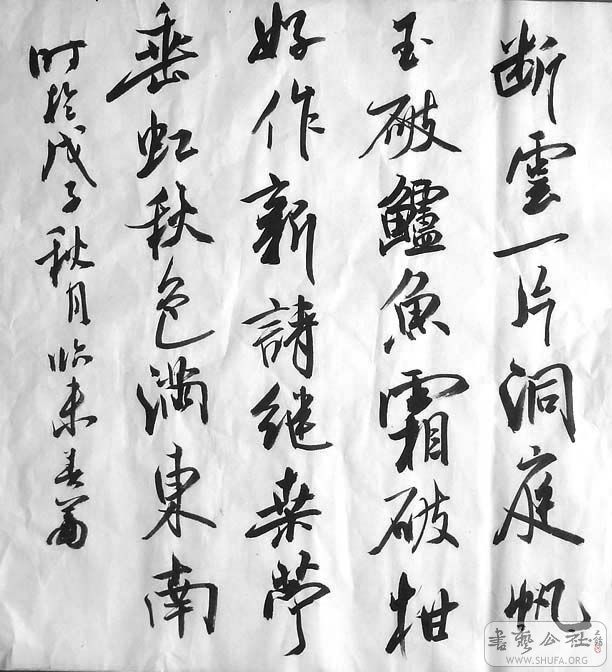 断雲一片洞庭帆
玉破鱸魚霜破柑
好作新詩继桑苧
垂虹秋色满東南
时於戊子秋月临
書藝公社
WWW.SHUFA.ORG